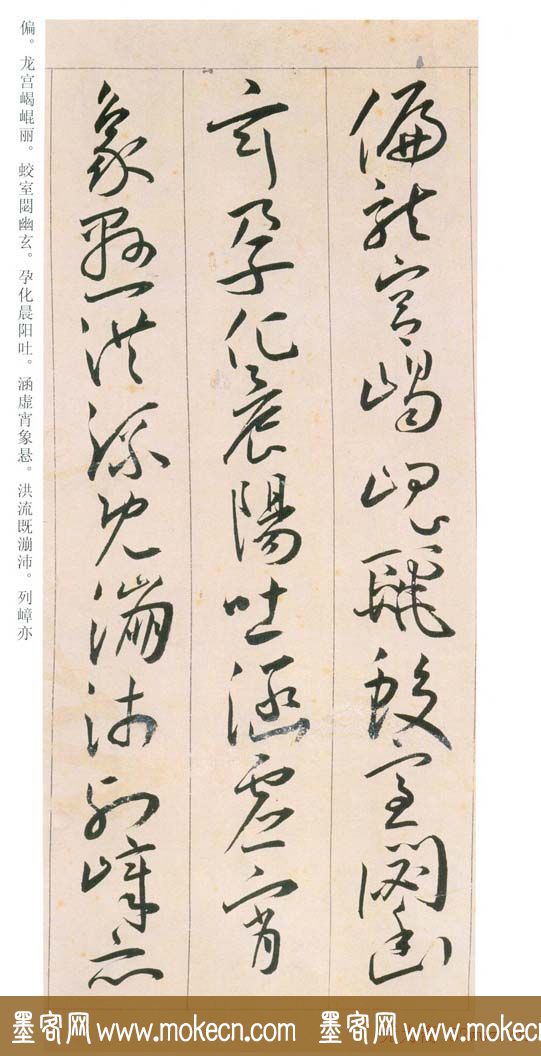 偏龍宮嵑崐麗蛟室閟幽
玄孕化晨陽吐涵虛宵
象懸洪流既漰沛列嶂亦
偏。龙宫嵑崐丽。蛟室閟幽玄。孕化晨阳吐。涵虚宵象悬。洪流既漰沛。列嶂亦
墨客网 www.mokecn.com 墨客网 www.mokecn.com